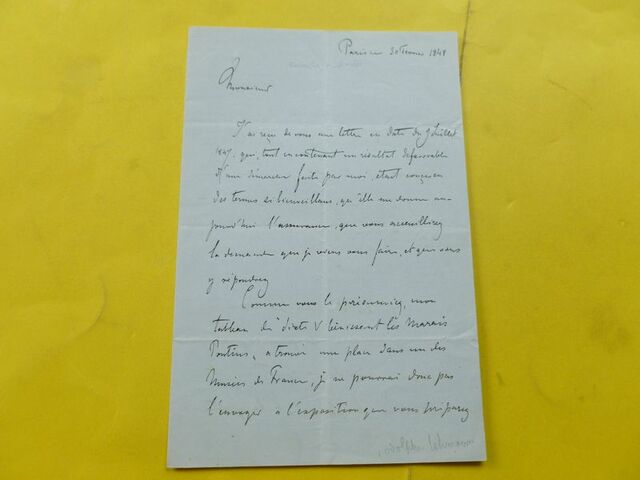 Paris ce 30 1848
Monsieur
J'ai reçu de vous une lettre en date du 9 Juillet
1847. qui, tout en contenant un résultat défavorable
d'une démarche faite par moi, était conçue en
des termes si bienveillans, qu'elle me donne au-
jourd'hui l'assurance, que vous accueillirez
la demande que je viens vous faire, et que vous
y répondrez
Comme vous le mon
tableau du Sixte V bénissant les Marais
Pontins, a trouvé une place dans un des
Musées de France, je ne pourrai donc pas
l'envoyer a l'exposition que vous préparez
Rodolphe Lehmann